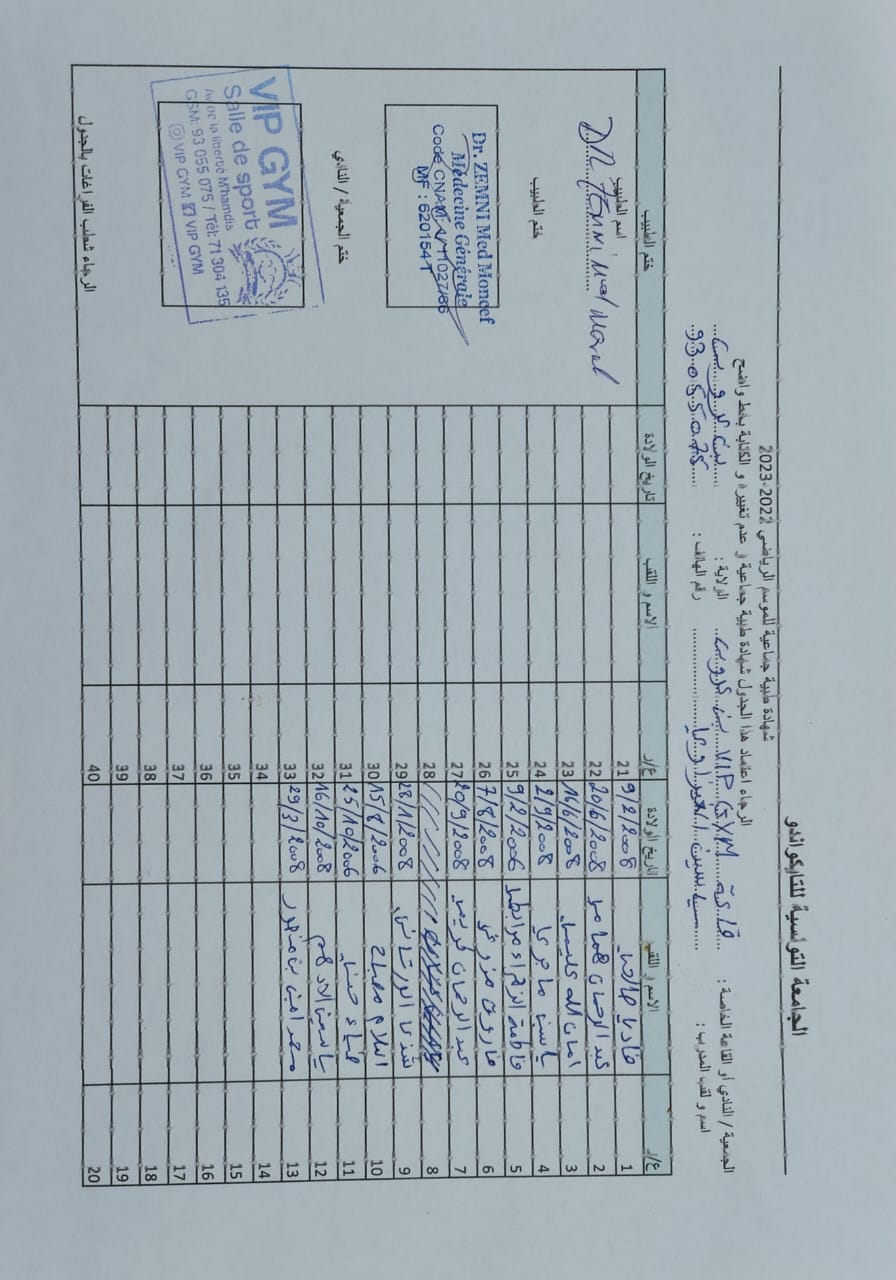 الجامعة التونسية للتايكواندو
شهادة طبية جماعية للموسم الرياضي 2022-2023
الرجاء اعتماد هذا الجدول شهادة طبية جماعية و عدم تغييره و الكتابة بخط واضح
الجمعية / النادي أو القاعة الخاصة : قاعة VIP GYM بن عروس الولاية : بن عروس
اسم و لقب المدرب : رقم الهاتف : 93055075
ع/ر الاسم و اللقب تاريخ الولادة ع/ر الاسم و اللقب تاريخ الولادة ختم الطبيب
1 9/2/2008 21
2 عبد الرحمان 20/6/2008 22
3 امان الله 16/6/2008 23
4 ياسين ماجري 2/9/2008 24
5 فاطمة الزهراء مرابط 9/2/2006 25
6 فاروق مرزوقي 7/8/2008 26
7 عبد الرحمان 20/9/2008 27
8 28
9 شذى الورتاني 28/1/2008 29
10 احلام مصباح 15/8/2006 30
11 ضياء 25/10/2006 31
12 ياسمين الادهم 16/10/2008 32
13 محمد امين بن منصور 29/3/2008 33
14 34
15 35
16 36
17 37
18 38
19 39
20 40
اسم الطبيب
DR
ختم الطبيب
Dr. ZEMNI Med Moncef
Médecine Générale
Code CNAM
MF : 620154
ختم الجمعية / النادي
VIP GYM
Salle de sport
Av de la liberté M'hamdia
GSM: 93 055 075 / Tél: 71 304 135
VIP GYM VIP GYM
الرجاء شطب الفراغات بالجدول